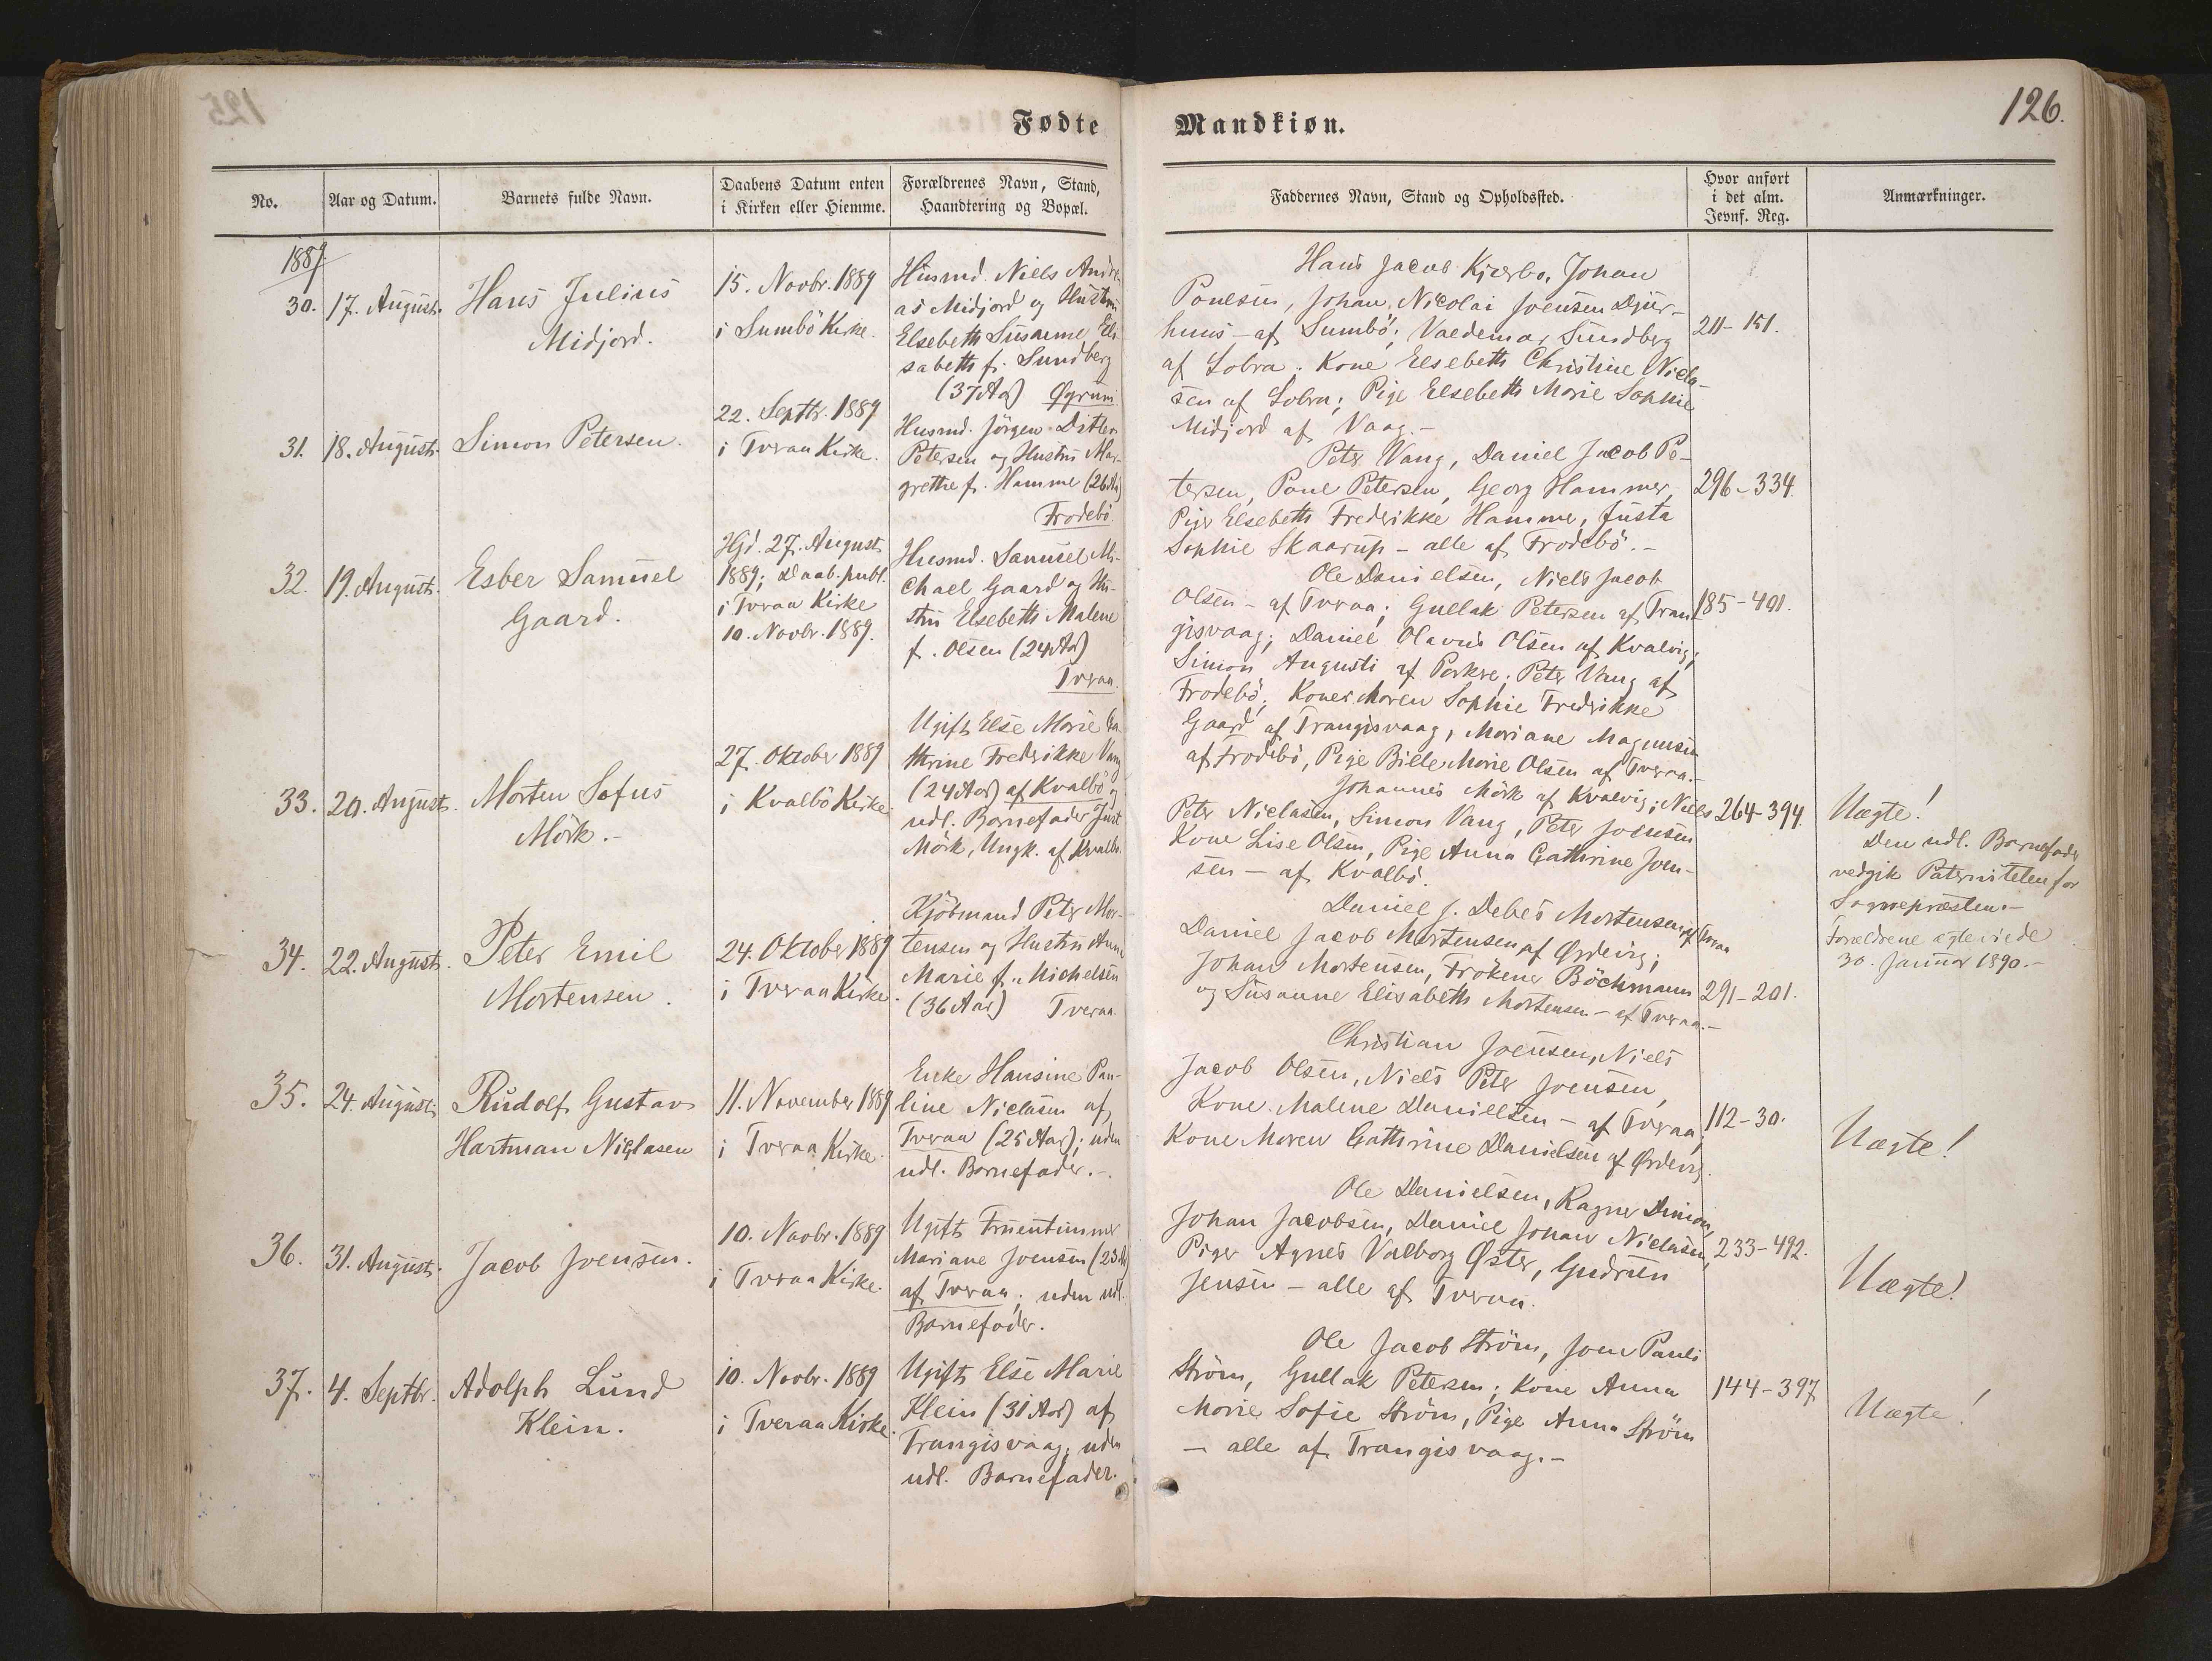 Fødte
Mandkiøn.
126.
No.
Aar og Datum.
Barnets fulde Navn.
Daabens Datum enten
i Kirken eller Hiemme.
Forældrenes Navn, Stand,
Haandtering og Bopæl.
Faddernes Navn, Stand og Opholdssted.
Hvor anført
i det alm.
Jevnf. Reg.
Anmærkninger.
1889.
30.
17. August.
Hans Julius
Midjord.
15. Novbr. 1889
i Sumbö Kirke.
Husmd. Niels Andre-
as Midjord og Hustru
Elsebeth Susanne Eli-
sabeth f. Lundberg
(37 Aar) Øgrum
Hans Jacob Kjærbo, Johan
Poulsen, Johan Nicolai Joensen Djur-
huus - af Sumbö; Valdemar Lundberg
af Lobra; Kone Elsebeth Christine Nicla-
sen af Lobra; Pige Elsebeth Marie Sophie
Midjord af Vaag.-
211-151.
31.
18. August.
Simon Petersen.
22. Septbr. 1889
i Tveraa Kirke.
Husmd. Jörgen Ditlev
Petersen og Hustru Mar-
grethe f. Hammer (26 Aar)
Frodebö.
Peter Vang, Daniel Jacob Pe-
tersen, Poul Petersen, Georg Hammer,
Piger Elsebeth Frederikke Hammer, Justa
Sophie Skaarup - alle af Frodebö.-
296-334.
32.
19. August.
Esber Samuel
Gaard.
Hjd. 27. August
1889; Daab. publ.
i Tveraa Kirke
10. Novbr. 1889.
Husmd. Samuel Mi-
chael Gaard og Hu-
stru Elsebeth Malene
f. Olsen (24 Aar)
Tveraa.
Ole Danielsen, Niels Jacob
Olsen - af Tveraa; Gullak Petersen af Tran-
gisvaag; Daniel Olavus Olsen af Kvalvig;
Simon Augusti af Porkre; Peter Vang af
Frodebö; Koner Maren Sophie Frederikke
Gaard af Trangisvaag, Mariane Magnusen
af Frodebö, Pige Bille Marie Olsen af Tveraa.-
185-401.
33.
20. August.
Morten Sofus
Mörk.-
27. Oktober 1889
i Kvalbö Kirke
Ugift Else Marie Ca-
thrine Frederikke Vang
(24 Aar) af Kvalbö og
udl. Barnefader Just
Mörk, Ungk. af Kvalbö.
Johannes Mörk af Kvalvig; Niels
Peter Niclasen, Simon Vang, Peter Joensen
Kone Lise Olsen, Pige Anna Cathrine Joen-
sen - af Kvalbö.
264-394.
Uægte!
Den udl. Barnefader
vedgik Paterniteten for
Sognepræsten.-
Forældrene ægteviede
30. Januar 1890.-
34.
22. August.
Peter Emil
Mortensen.
24. Oktober 1889
i Tveraa Kirke.
Kjöbmand Peter Mor-
tensen og Hustru Anna
Marie f. Michelsen
(36 Aar) Tveraa.
Daniel J. Debes Mortensen af Tveraa
Daniel Jacob Mortensen af Ørdevig;
Johan Mortensen, Frökener Böchmann
og Susanne Elisabeth Mortensen - af Tveraa.-
291-201.
35.
24. August.
Rudolf Gustav
Hartman Niclasen
11. November 1889
i Tveraa Kirke.
Enke Hansine Pau-
line Niclasen af
Tveraa (25 Aar); uden
udl. Barnefader.-
Christian Joensen, Niels
Jacob Olsen, Niels Peter Joensen,
Kone Malene Danielsen - af Tveraa;
Kone Maren Cathrine Danielsen af Ørdevig.
112-30.
Uægte!
36.
31. August.
Jacob Joensen.
10. Novbr. 1889
i Tveraa Kirke.
Ugift Fruentimmer
Mariane Joensen (23 Aar)
af Tveraa; uden udl.
Barnefader.
Ole Danielsen, Ragner
Johan Jacobsen, Daniel Johan Niclasen,
Piger Agnes Valborg Øster, Gudrun
Jensen - alle af Tveraa.
233-492.
Uægte!
37.
4. Septbr.
Adolph Lund
Klein.
10. Novbr. 1889
i Tveraa Kirke.
Ugift Else Marie
Klein (31 Aar) af
Trangisvaag; uden
udl. Barnefader.
Ole Jacob Ström, Joen Pauli
Ström, Gullak Petersen; Kone Anna
Marie Sofie Ström, Pige Anna Ström
- alle af Trangisvaag.-
144-397
Uægte!